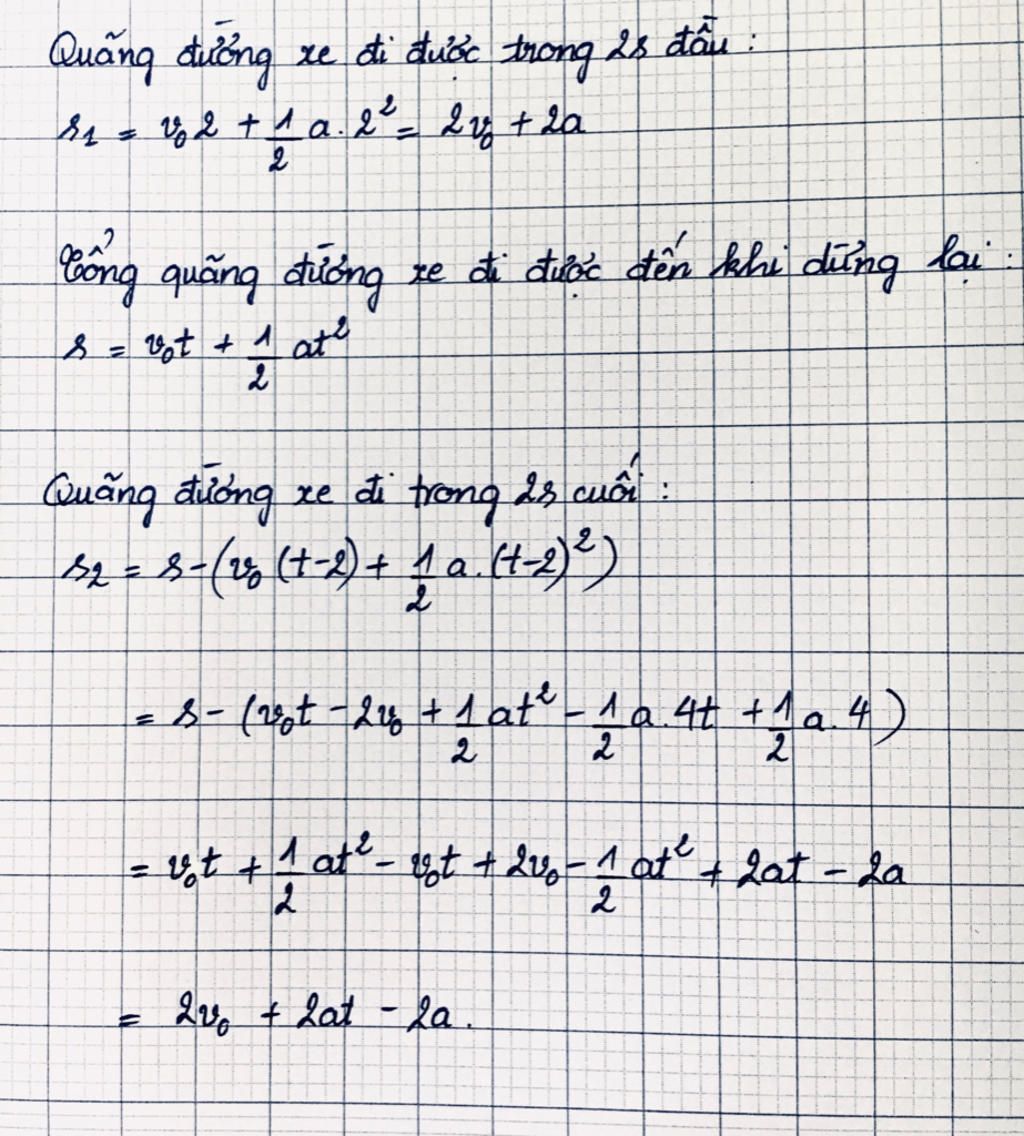 Quãng đường xe đi được trong 2s đầu :
s₁ = v₀2 + 1/2 a. 2² = 2v₀ + 2a
Tổng quãng đường xe đi được đến khi dừng lại :
s = v₀t + 1/2 at²
Quãng đường xe đi trong 2s cuối :
s₂ = s - (v₀ (t-2) + 1/2 a. (t-2)²)
= s - (v₀t - 2v₀ + 1/2 at² - 1/2 a. 4t + 1/2 a. 4)
= v₀t + 1/2 at² - v₀t + 2v₀ - 1/2 at² + 2at - 2a
= 2v₀ + 2at - 2a.